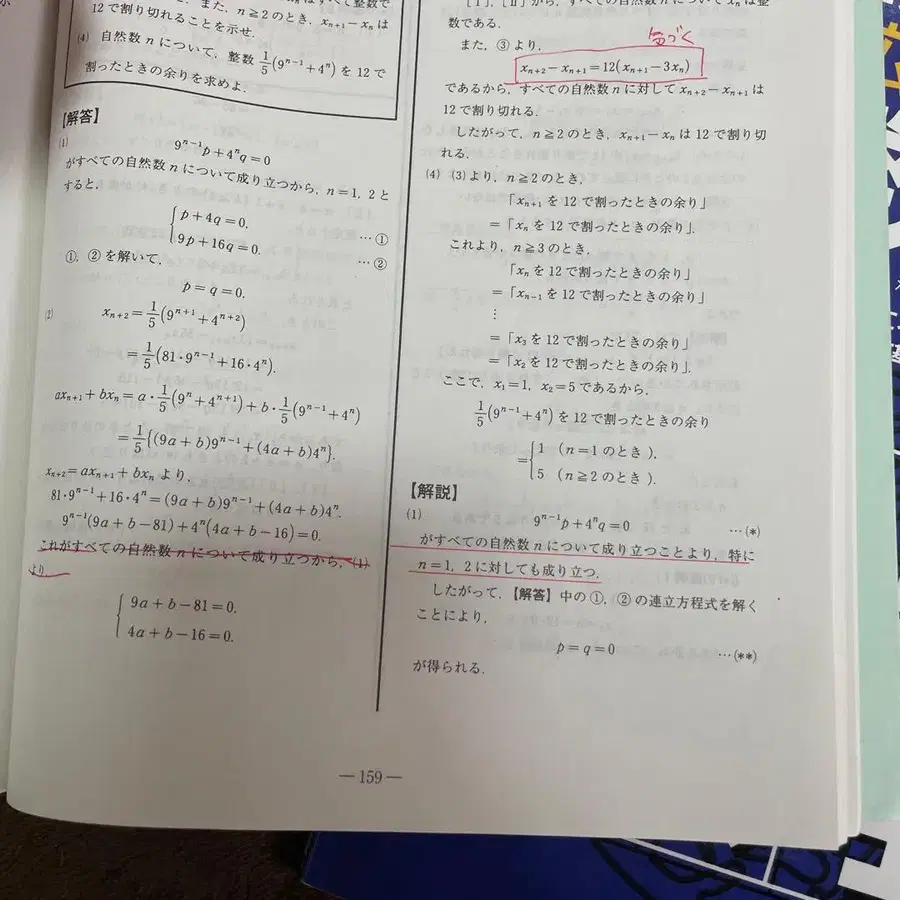 12で割り切れることを示せ.
また, n≧2のとき, xₙ₊₁−xₙは
(4) 自然数nについて, 整数 1/5(9ⁿ⁻¹+4ⁿ) を12で
割ったときの余りを求めよ.
【解答】
(1) 9ⁿ⁻¹p+4ⁿq=0
がすべての自然数nについて成り立つから, n=1, 2と
すると,
{p+4q=0. …①
9p+16q=0. …②
①, ②を解いて,
p=q=0.
(2) xₙ₊₂=1/5(9ⁿ⁺¹+4ⁿ⁺²)
=1/5(81・9ⁿ⁻¹+16・4ⁿ).
axₙ₊₁+bxₙ=a・1/5(9ⁿ+4ⁿ⁺¹)+b・1/5(9ⁿ⁻¹+4ⁿ)
=1/5{(9a+b)9ⁿ⁻¹+(4a+b)4ⁿ}.
xₙ₊₂=axₙ₊₁+bxₙより,
81・9ⁿ⁻¹+16・4ⁿ=(9a+b)9ⁿ⁻¹+(4a+b)4ⁿ.
9ⁿ⁻¹(9a+b−81)+4ⁿ(4a+b−16)=0.
これがすべての自然数nについて成り立つから, (1)
より
{9a+b−81=0.
4a+b−16=0.
数である.
気づく
また, ③より,
xₙ₊₂−xₙ₊₁=12(xₙ₊₁−3xₙ)
であるから, すべての自然数nに対してxₙ₊₂−xₙ₊₁は
12で割り切れる.
したがって, n≧2のとき, xₙ₊₁−xₙは12で割り切
れる.
(4) (3)より, n≧2のとき,
「xₙ₊₁を12で割ったときの余り」
=「xₙを12で割ったときの余り」.
これより, n≧3のとき,
「xₙを12で割ったときの余り」
=「xₙ₋₁を12で割ったときの余り」
⋮
=「x₃を12で割ったときの余り」
=「x₂を12で割ったときの余り」.
ここで, x₁=1, x₂=5であるから,
1/5(9ⁿ⁻¹+4ⁿ)を12で割ったときの余り
={1 (n=1のとき).
5 (n≧2のとき).
【解説】
(1) 9ⁿ⁻¹p+4ⁿq=0 …(*)
がすべての自然数nについて成り立つことより, 特に
n=1, 2に対しても成り立つ.
したがって,【解答】中の①, ②の連立方程式を解く
ことにより,
p=q=0 …(**)
が得られる.
—159—